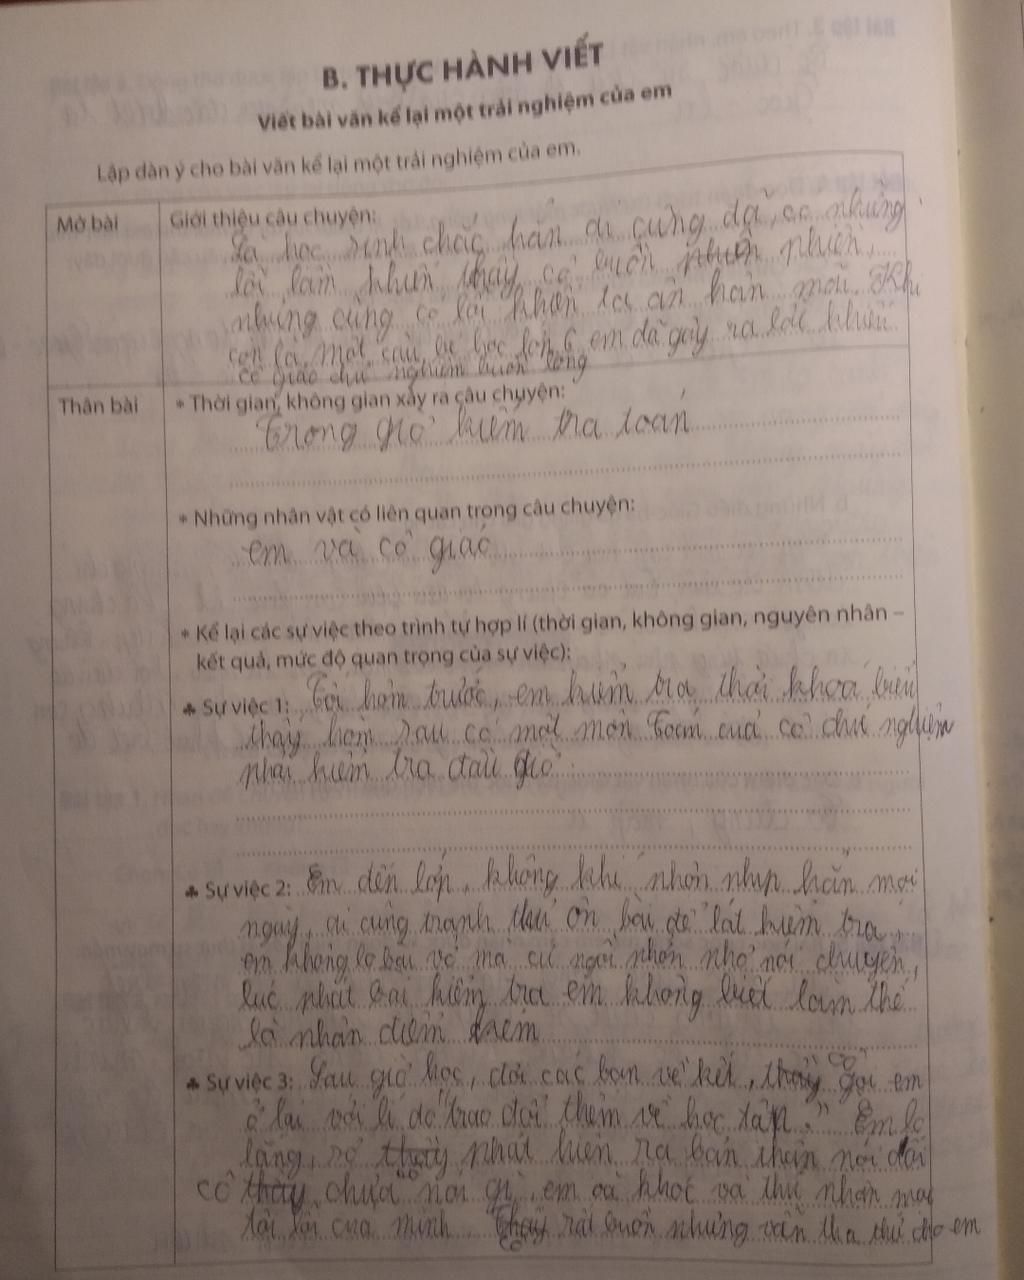 B. THỰC HÀNH VIẾT
Viết bài văn kể lại một trải nghiệm của em
Lập dàn ý cho bài văn kể lại một trải nghiệm của em.
Mở bài
Giới thiệu câu chuyện:
Là học sinh chắc hẳn ai cũng đã có những
lỗi lầm khiến thầy cô buồn phiền,
nhưng cũng có lỗi khiến ta ân hận mãi. Khi
còn là một cậu bé học lớp 6, em đã gây ra lỗi khiến
cô giáo chủ nghiệm buồn lòng
Thân bài
* Thời gian, không gian xảy ra câu chuyện:
Trong giờ kiểm tra toán
* Những nhân vật có liên quan trong câu chuyện:
em và cô giáo
* Kể lại các sự việc theo trình tự hợp lí (thời gian, không gian, nguyên nhân –
kết quả, mức độ quan trọng của sự việc):
♣ Sự việc 1: Tối hôm trước, em kiểm tra thời khoá biểu
thấy hôm sau có một môn Toán của cô chủ nghiệm
phải kiểm tra đầu giờ
♣ Sự việc 2: Em đến lớp, không khí nhộn nhịp hẳn mọi
ngày, ai cũng tranh thủ ôn bài để lát kiểm tra,
em không lo bài vở mà cứ ngồi nhỏ nói chuyện,
lúc phát bài kiểm tra em không biết làm thế
là nhận điểm kém
♣ Sự việc 3: Sau giờ học, đợi các bạn về hết, cô gọi em
ở lại với lí do "trao đổi thêm về học tập." Em lo
lắng, sợ cô phát hiện ra bản thân nói dối
cô chưa nói gì, em oà khóc và thú nhận mọi
tội lỗi của mình. Cô rất buồn nhưng vẫn tha thứ cho em